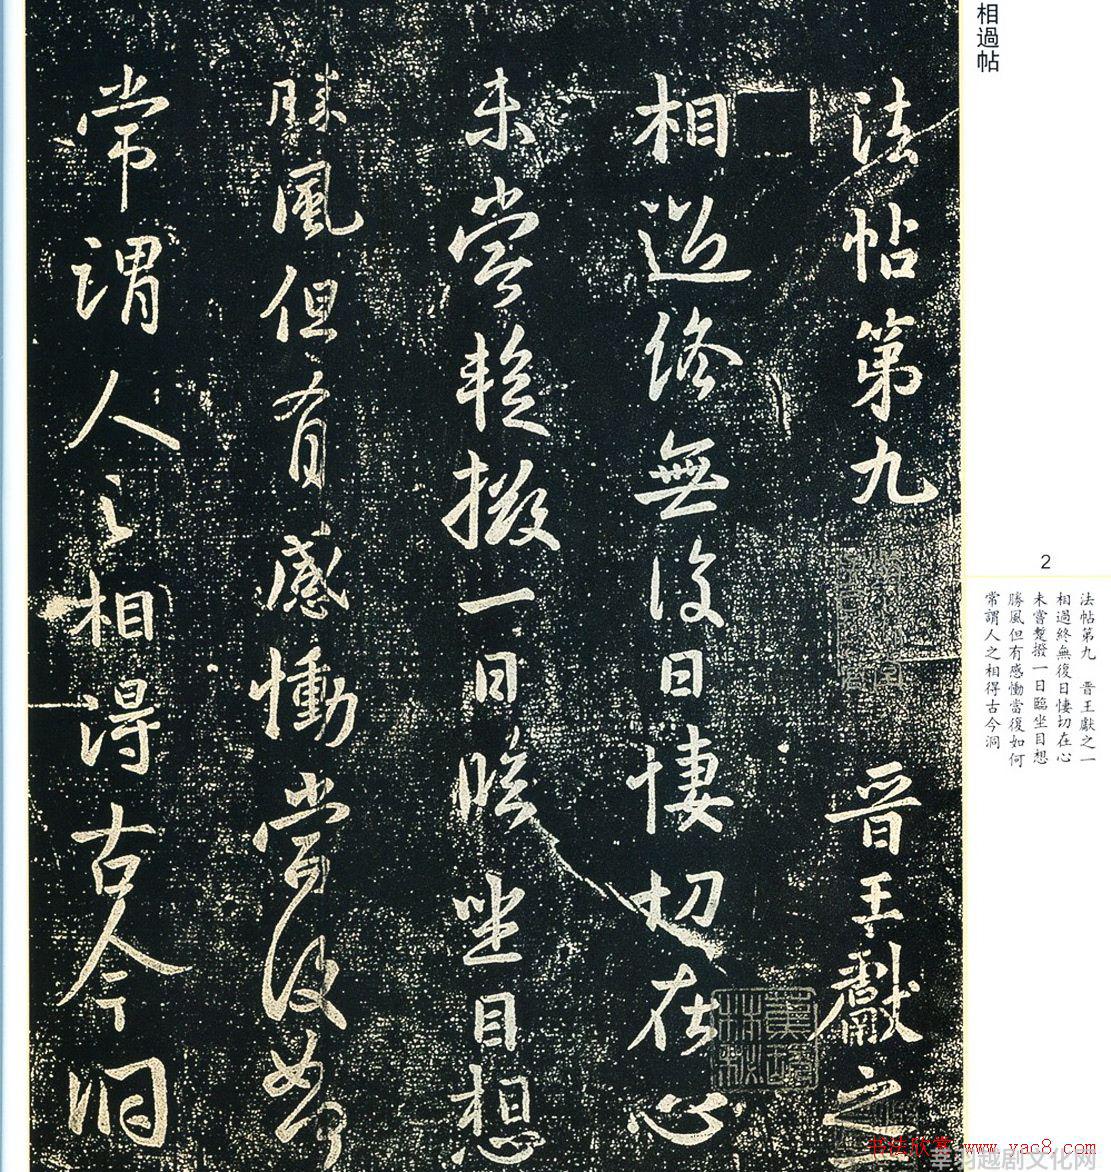 相過帖
法帖第九 晉王獻之
相過終無復日悽切在心
未嘗暫撥一日臨坐目想
勝風但有感慟當復如何
常謂人之相得古今洞
2
法帖第九 晉王獻之一
相過終無復日悽切在心
未嘗蹔撥一日臨坐目想
勝風但有感慟當復如何
常謂人之相得古今洞
书法欣赏 www.yac8.com
越剧文化网